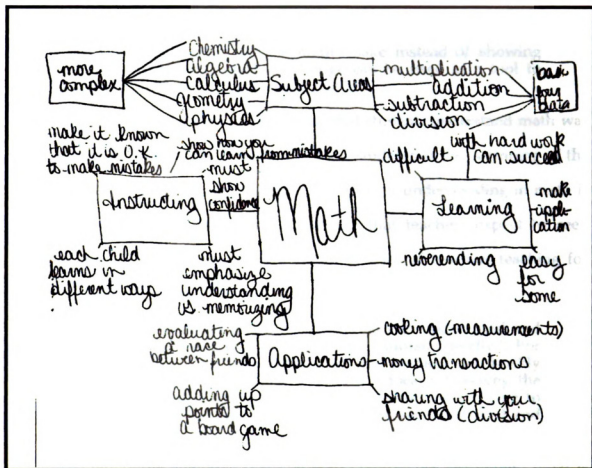 more
complex
Chemistry
algebra
Calculus
geometry
physics
Subject Areas
multiplication
addition
subtraction
division
data
make it known
that it is O.K.
to make mistakes
show how you
can learn from mistakes
must
show
confidence
Instructing
each child
learns in
different ways
must
emphasize
understanding
vs memorizing
Math
difficult
with hard work
can succeed
Learning
make
appli-
cation
neverending
easy
for
some
evaluating
a race
between friends
Applications
cooking (measurements)
money transactions
sharing with your
friends (division)
adding up
points to
a board game